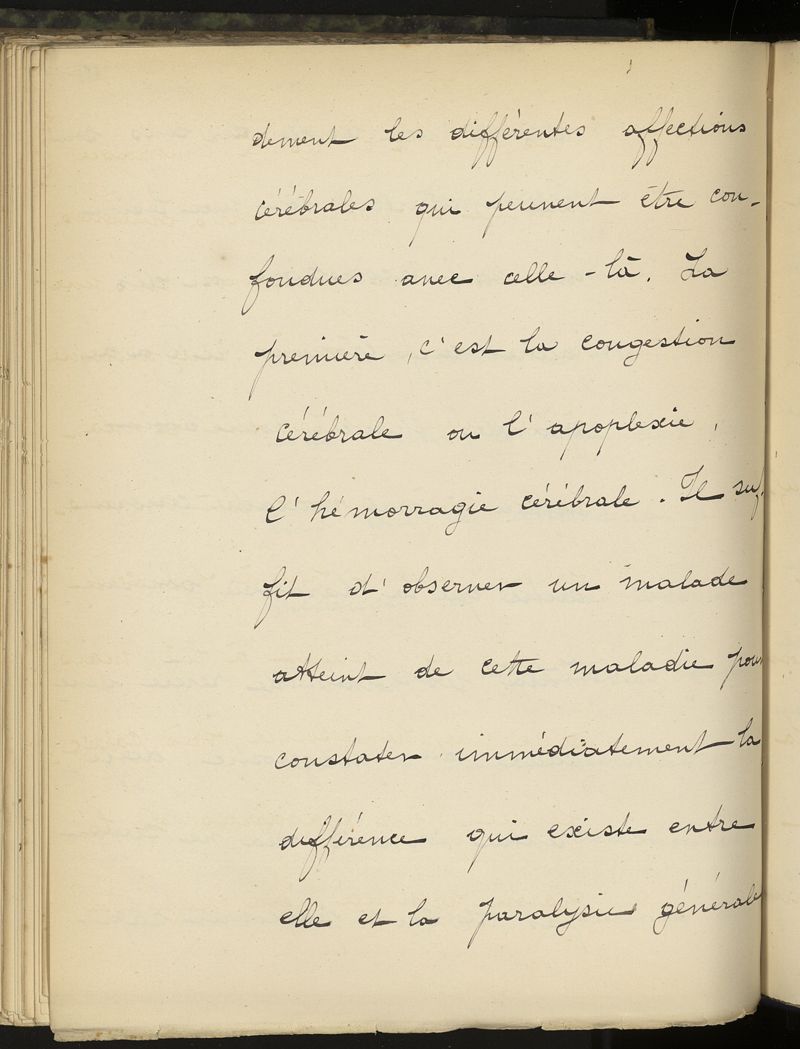 dement les différentes affections
cérébrales qui peuvent être con-
fondues avec celle-là. La
première, c'est la congestion
cérébrale ou l'apoplexie,
l'hémorragie cérébrale. Il suf-
fit d'observer un malade
atteint de cette maladie pour
constater immédiatement la
différence qui existe entre
elle et la paralysie générale